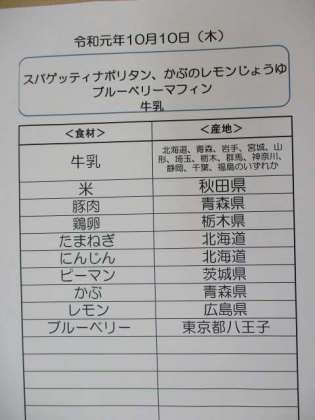 令和元年10月10日（木）
スパゲッティナポリタン、かぶのレモンじょうゆ
ブルーベリーマフィン
牛乳
＜食材＞ ＜産地＞
牛乳 北海道、青森、岩手、宮城、山
形、埼玉、栃木、群馬、神奈川、
静岡、千葉、福島のいずれか
米 秋田県
豚肉 青森県
鶏卵 栃木県
たまねぎ 北海道
にんじん 北海道
ピーマン 茨城県
かぶ 青森県
レモン 広島県
ブルーベリー 東京都八王子